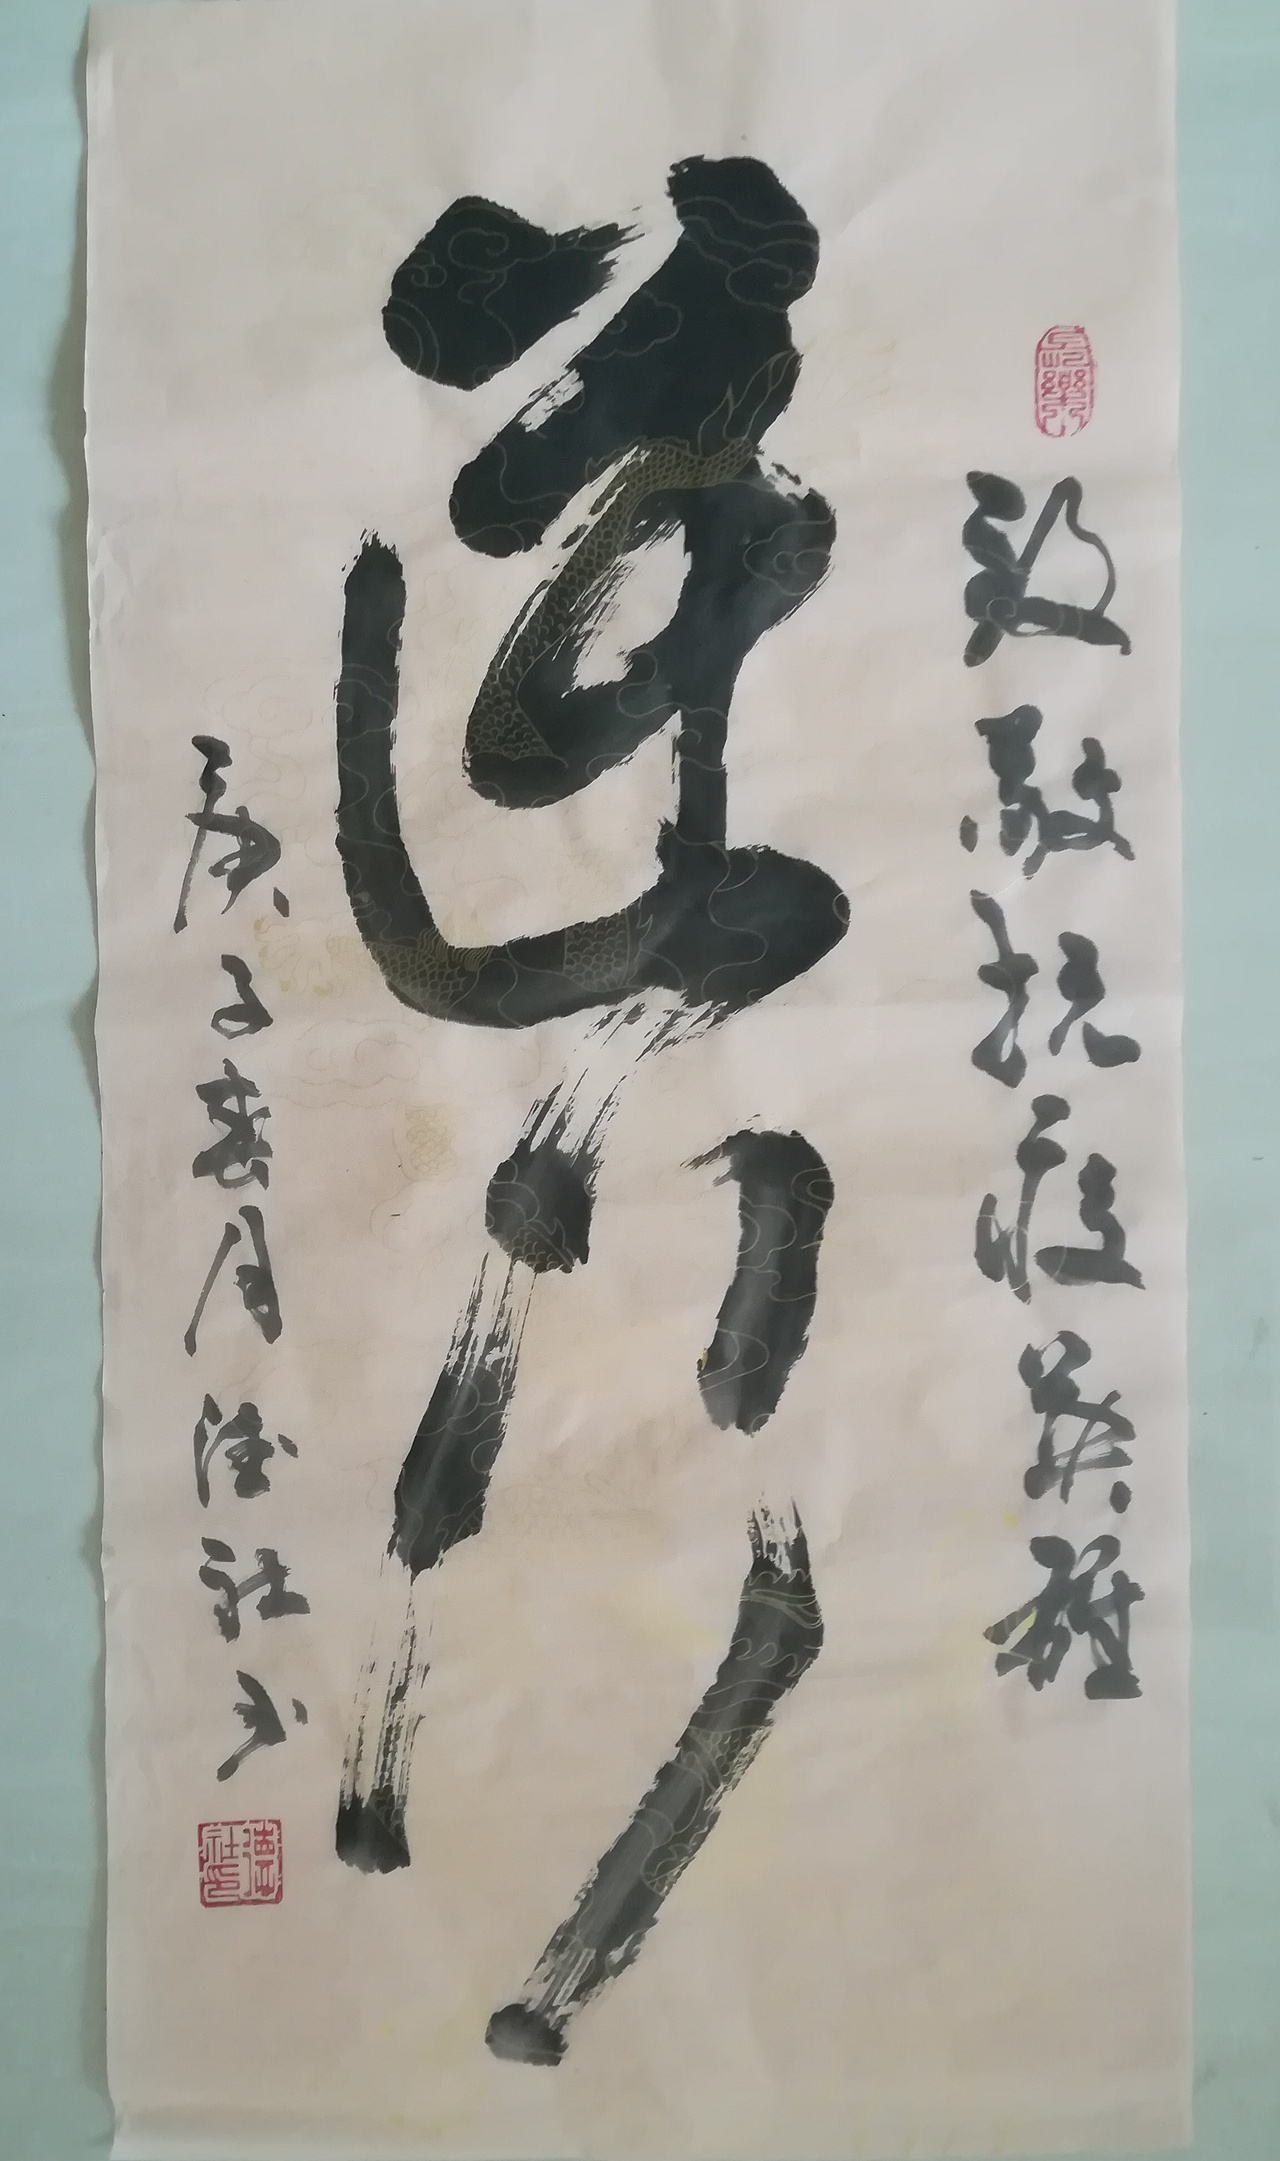 致敬抗疫英雄
逆行
庚子春月德社书